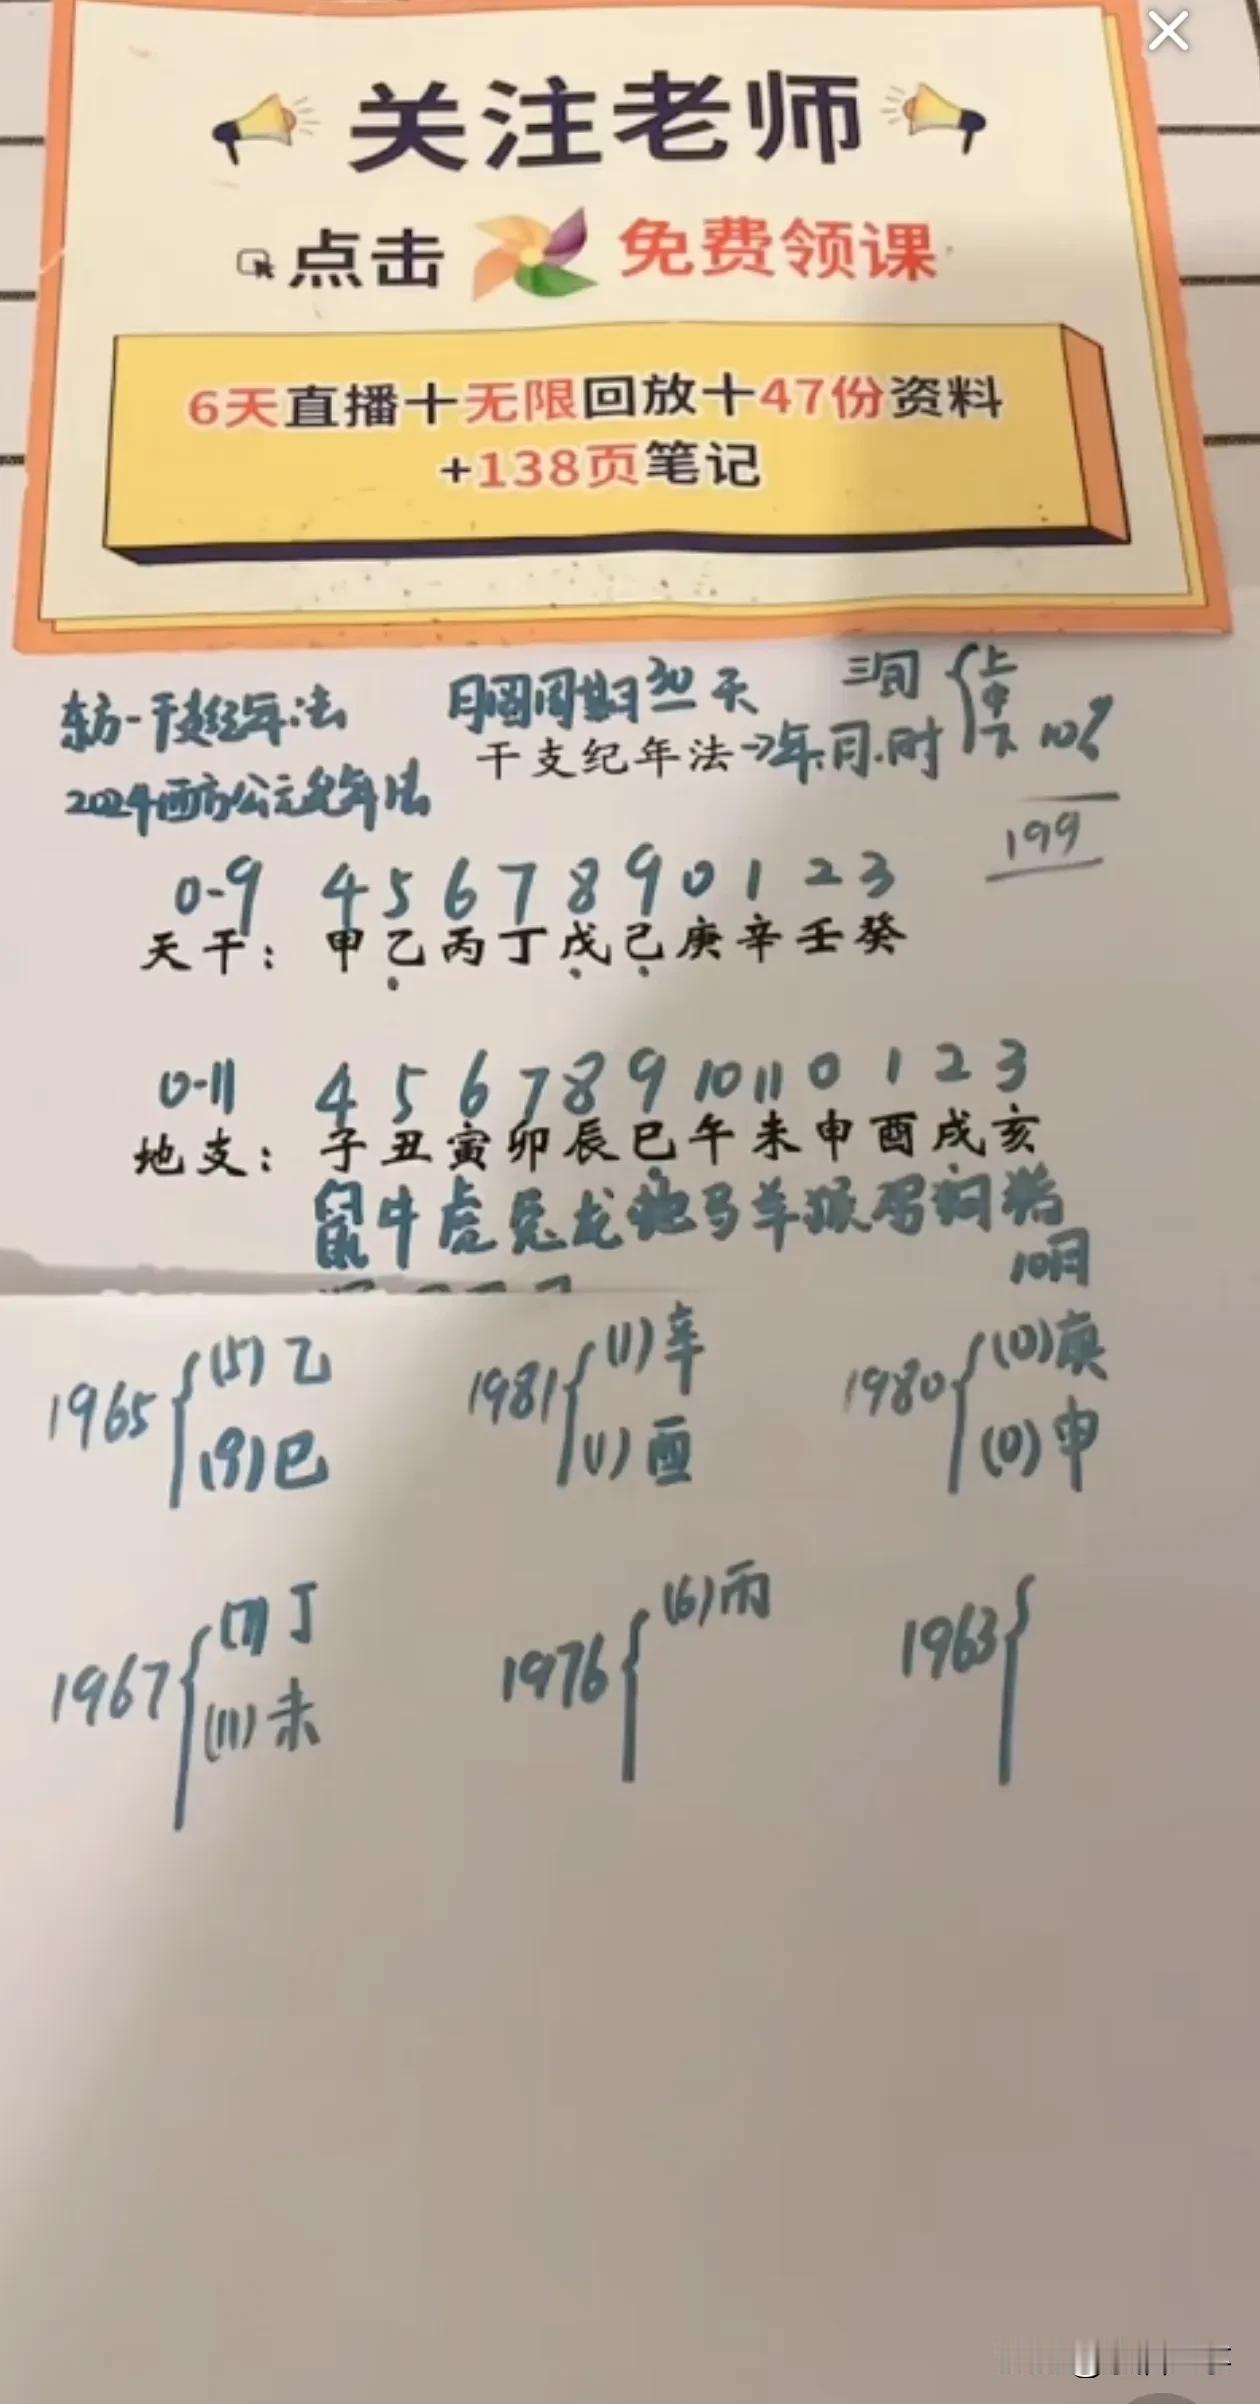 关注老师
点击 免费领课
6天直播+无限回放+47份资料
+138页笔记
东方-干支纪年法
月圆周期30天
三旬 { 上 中 下 10
干支纪年法→年.月.时
2024西方公元纪年法
199
0-9 4 5 6 7 8 9 0 1 2 3
天干: 甲乙丙丁戊己庚辛壬癸
0-11 4 5 6 7 8 9 10 11 0 1 2 3
地支: 子丑寅卯辰巳午未申酉戌亥
鼠牛虎兔龙蛇马羊猴鸡狗猪
10月
1965 { (5)乙
(9)巳
1981 { (1)辛
(1)酉
1980 { (0)庚
(0)申
1967 { (7)丁
(11)未
1976 { (6)丙
1963 {